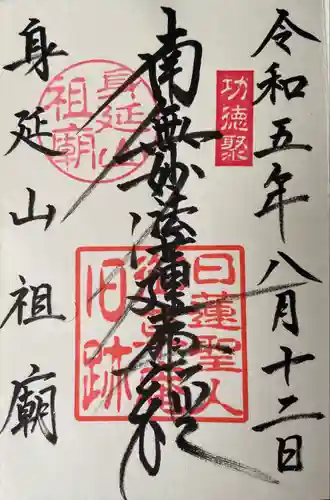 令和五年八月十二日
功徳聚
南無妙法蓮華経
身延山
祖廟
日蓮聖人
旧跡
身延山祖廟